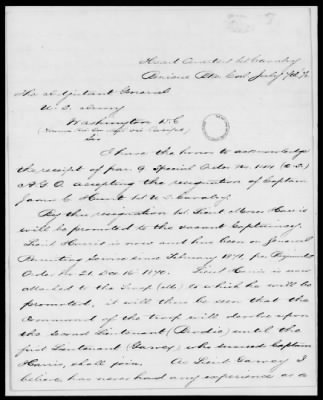 Head Quarters 1st Cavalry
Benicia Bks Cal July
The Adjutant General
U. S. Army
Washington D.C.
Sir
I have the honor to acknowledge
the receipt of par 9 Special Orders No 144 (c.s.)
A.G.O. accepting the resignation of Captain
James C Hunt 1st U.S Cavalry.
By this resignation 1st Lieut Moses Harris
will be promoted to the vacant Captaincy.
Lieut Harris is now and has been on General
Recruiting Service since February 1871, per Regimental
Order No 21. Dec 16" 1870. Lieut Harris is now
attached to the Troop to which he will be
promoted, it will then be seen that the
command of the troop will devolve upon
the Second Lieutenant until the
first Lieutenant (Garvey) who succeeds Captain
Harris, shall join. As Lieut Garvey I
believe has never had any experience as a